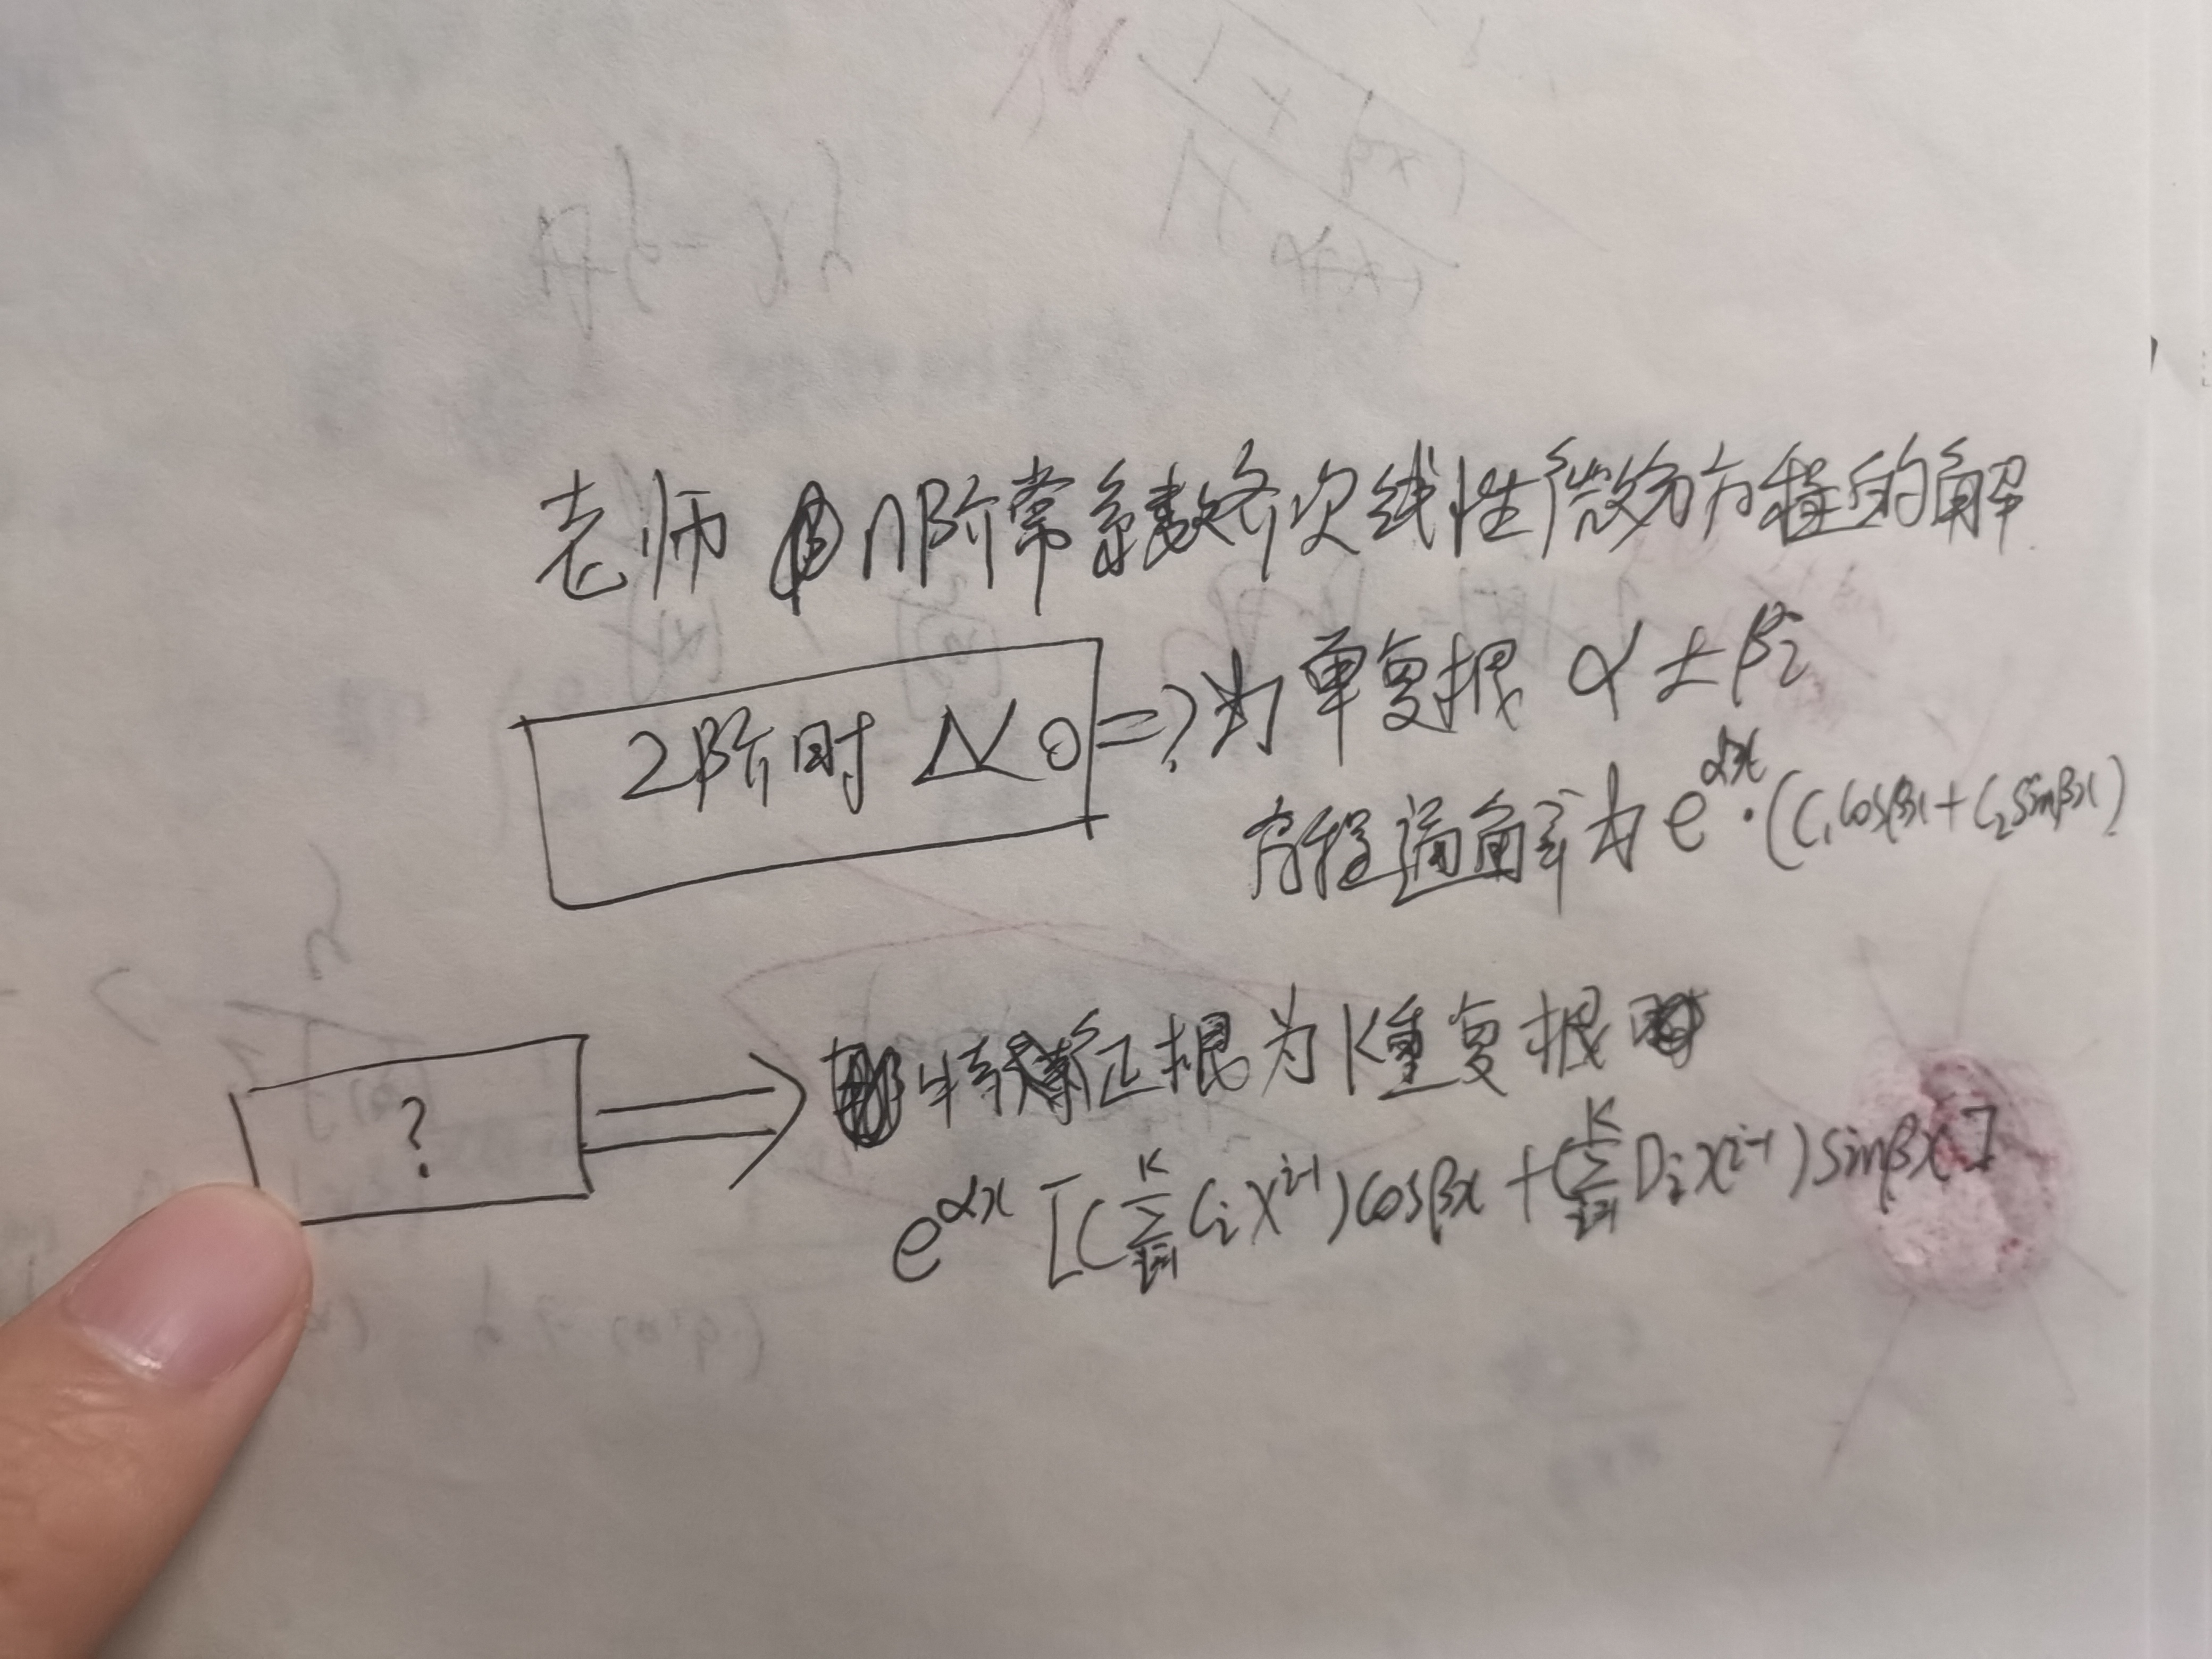 老师 n阶常系数齐次线性微分方程的解
2阶时 Δ<0 => 为单复根 α±βi
方程通解为 e^{αx}·(C₁cosβx+C₂sinβx)
? => 特征根为k重复根
e^{αx}[(∑_{i=1}^{k} C_i x^{i-1})cosβx+(∑_{i=1}^{k} D_i x^{i-1})sinβx]